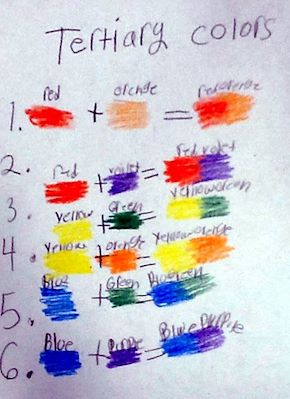 Tertiary colors
red orange redorange
1. + =
Red violet Red violet
2. + =
yellow Green yellowGreen
3. + =
yellow orange yellow orange
4. + =
Blue Green BlueGreen
5. + =
Blue Purple Blue Purple
6. + =